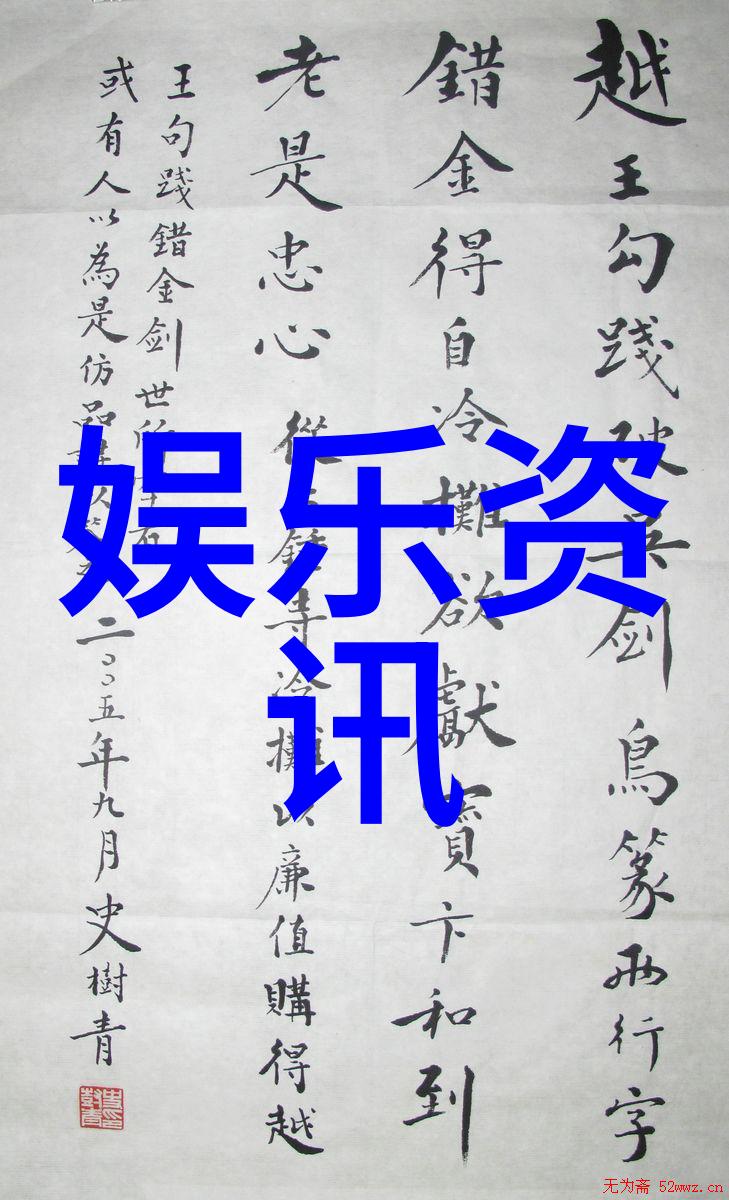 越王勾踐破吳剑鳥篆兩行字
錯金得自冷攤欲獻寶卞和到
老是忠心 從鍾寺冷攤以廉值購得越
王句踐錯金剑世所有
或有人以為是仿品以 二〇〇五年九月史樹青
娱乐资
讯
无为斋 52wwz.cn